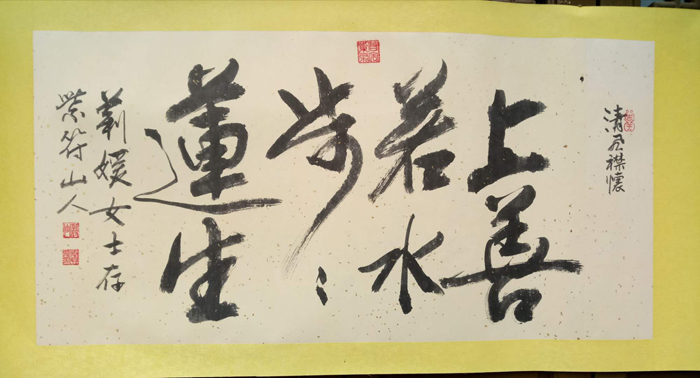 清风襟懷
上善
若水
步〻
蓮生
莉媛女士存
紫符山人